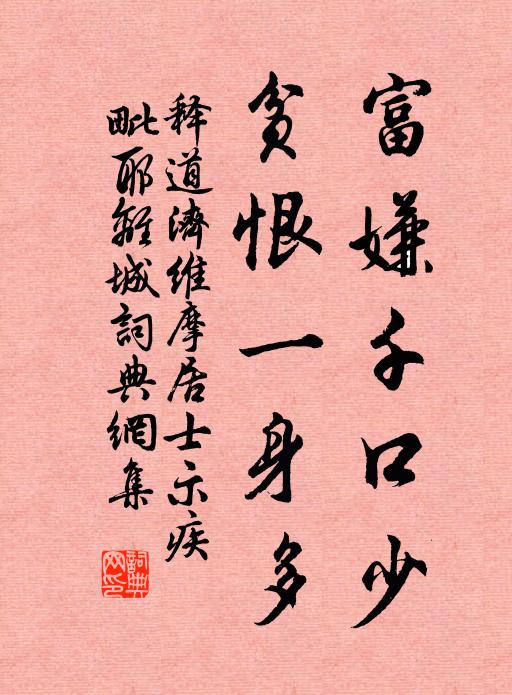 富嫌千口少
貧恨一身多
释道濟維摩居士示疾
毗耶離城詞典網集
詞典网印